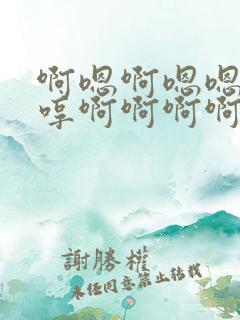 啊嗯啊嗯嗯
哼啊啊啊啊
謝勝權
未经同意禁止转载